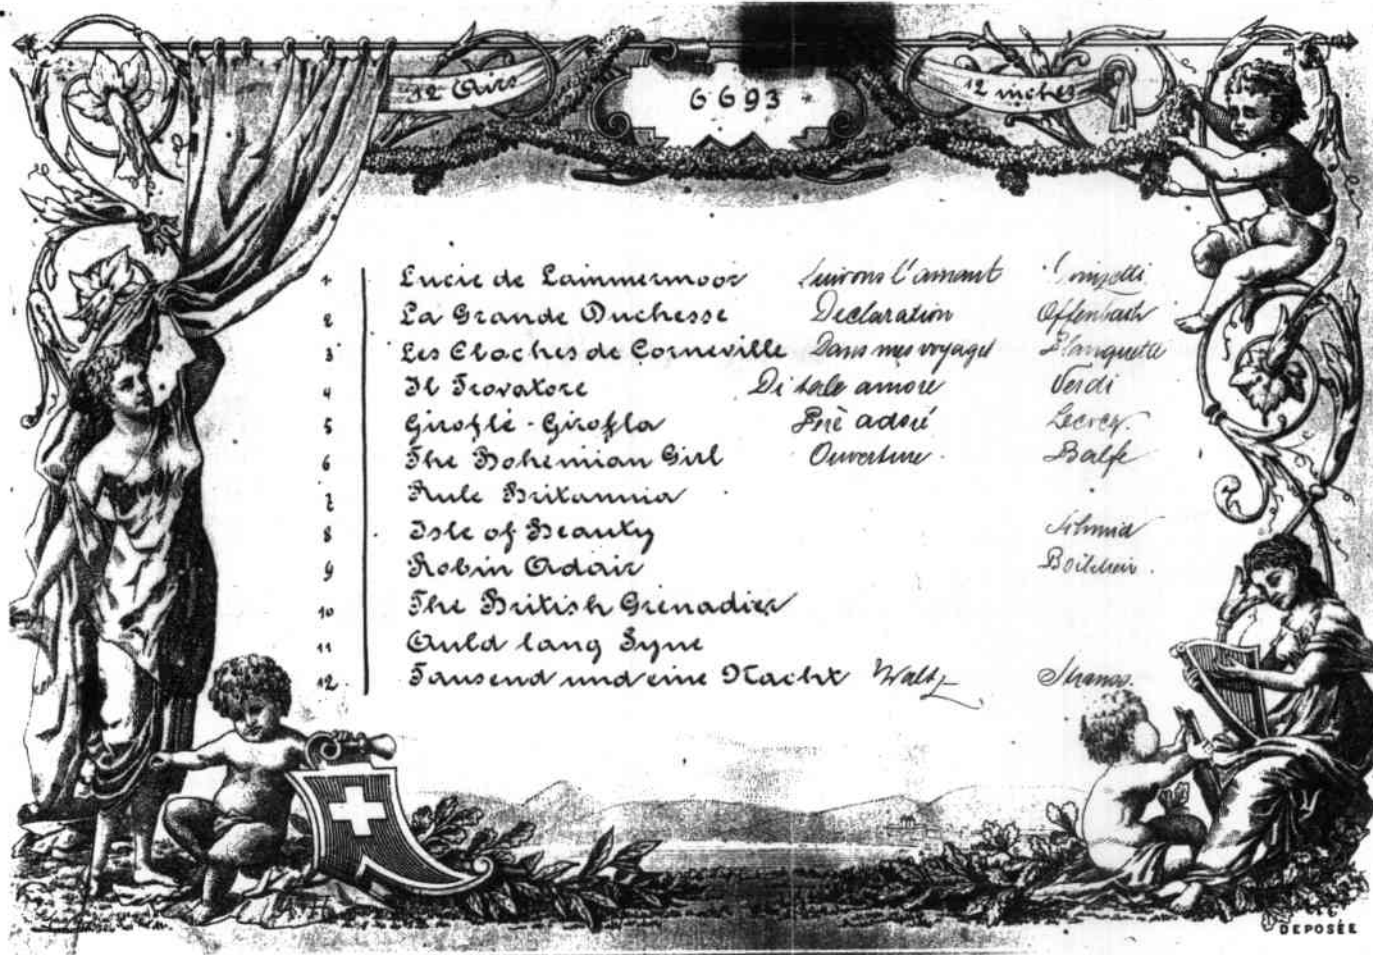 12 Airs
6693
12 inches
1 Lucie de Lammermoor Suivons l'amant Donizetti
2 La Grande Duchesse Declaration Offenbach
3 Les Cloches de Corneville Dans mes voyages Planquette
4 Il Trovatore Di tale amore Verdi
5 Giroflé-Girofla Père adoré Lecocq.
6 The Bohemian Girl Ouverture. Balfe
7 Rule Britannia
8 Isle of Beauty
9 Robin Adair
10 The British Grenadier
11 Auld lang Syne
12. Tausend und eine Nacht Waltz Strauss.
DEPOSÉE